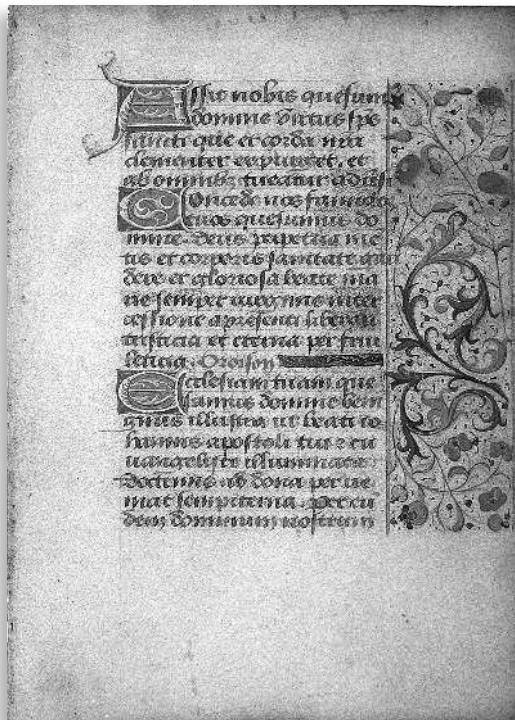 Assit nobis quesumus
domine virtus sps
sancti que et corda nra
clementer expurget. et
ab omnibz tueatur aduersis
Concede nos famulos
tuos quesumus do
mine deus perpetua men
tis et corporis sanitate gau
dere et gloriosa beate ma
rie semper virginis inter
cessione a presenti liberari
tristicia et eterna per frui
leticia. Oroison
Ecclesiam tuam que
sumus domine beni
gnus illustra ut beati io
hannis apostoli tui et eu
uangeliste illuminata
doctrinis ad dona per ue
niat sempiterna. per eu
dem dominum nostrum